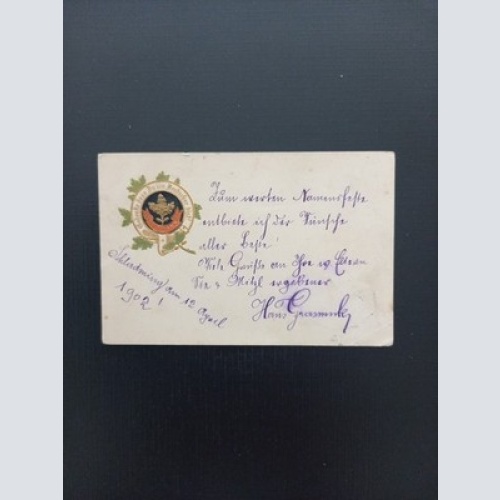 Zum werten Namensfeste
entbiete ich der Wünsche
aller Beste!
Viele Grüße an Ihre w. Eltern
Sie u. Mitzl ergebener
Hans
Schladming am 12 April
1902!